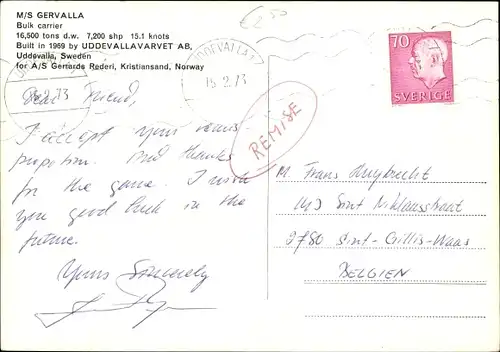 M/S GERVALLA
Bulk carrier
16,500 tons d.w. 7,200 shp 15.1 knots
Built in 1969 by UDDEVALLAVARVET AB,
Uddevalla, Sweden
for A/S Gerrards Rederi, Kristiansand, Norway
€2 50
UDDEVALLA
15.2.73
2.73
70
SVERIGE
REMISE
Dear Friend,
I accept your remis-
propotion. And thanks
for the game. I wish
you good luck in the
future.
Yours Sincerely
M. Frans Huybrecht
Sint Niklaasstraat
2780 Sint-Gillis-Waas
BELGIEN